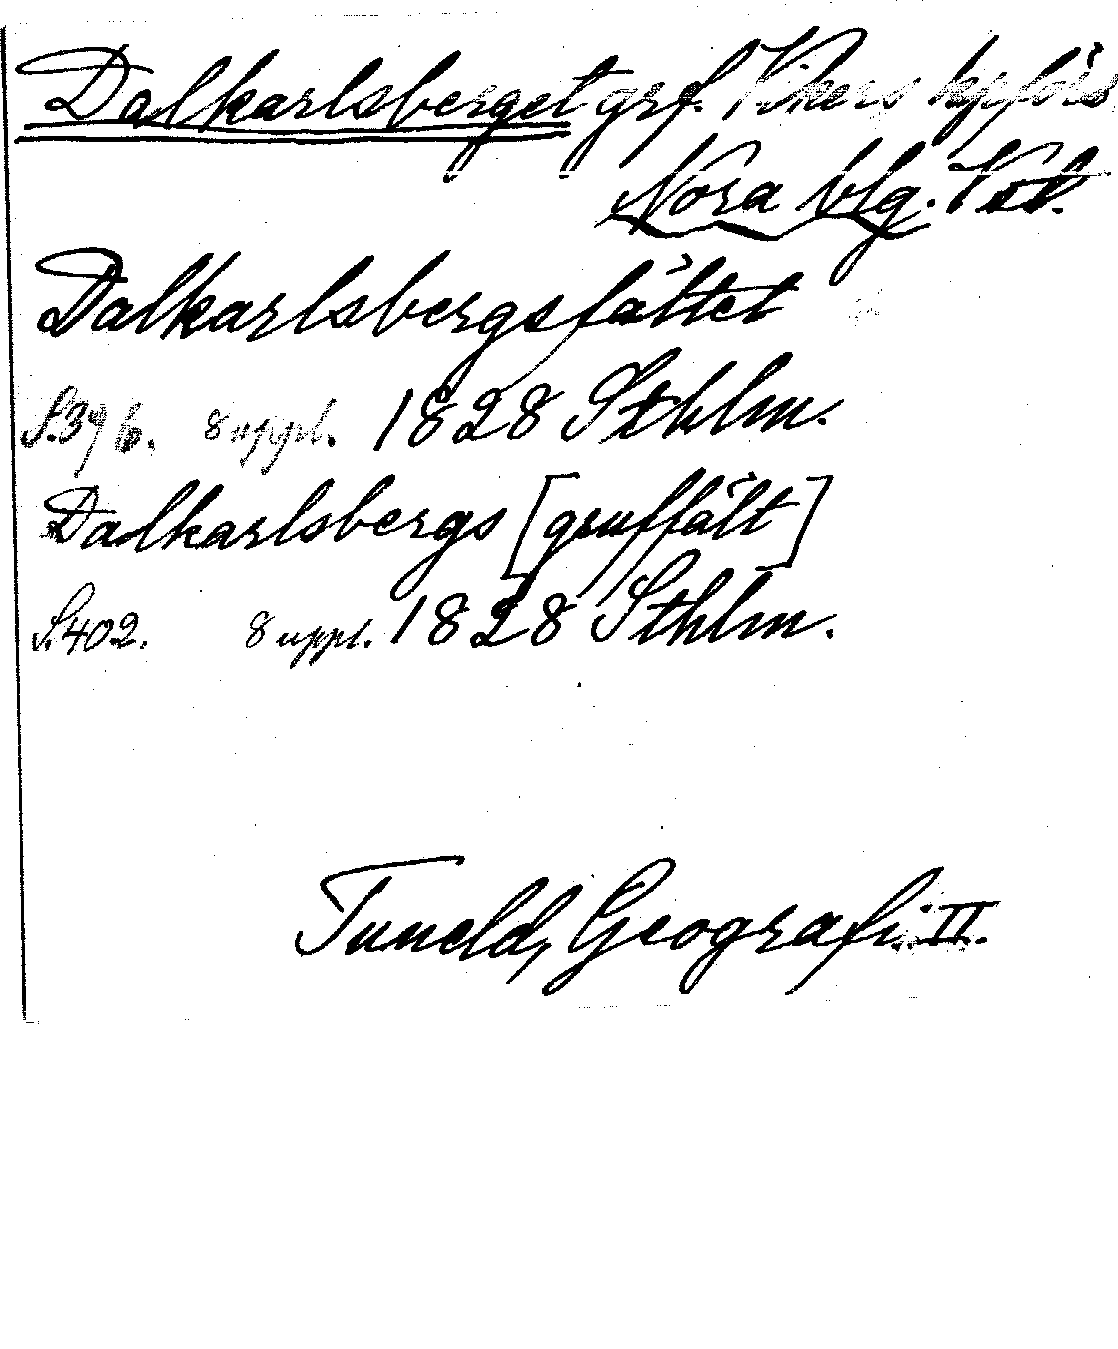 Dalkarlsberget grf. Vikers kpförs
Nora blg. Vstl.
Dalkarlsbergsfältet
S.396. 8 uppl. 1828 Sthlm.
Dalkarlsbergs [gruffält]
S.402. 8 uppl. 1828 Sthlm.
Tuneld, Geografi II.